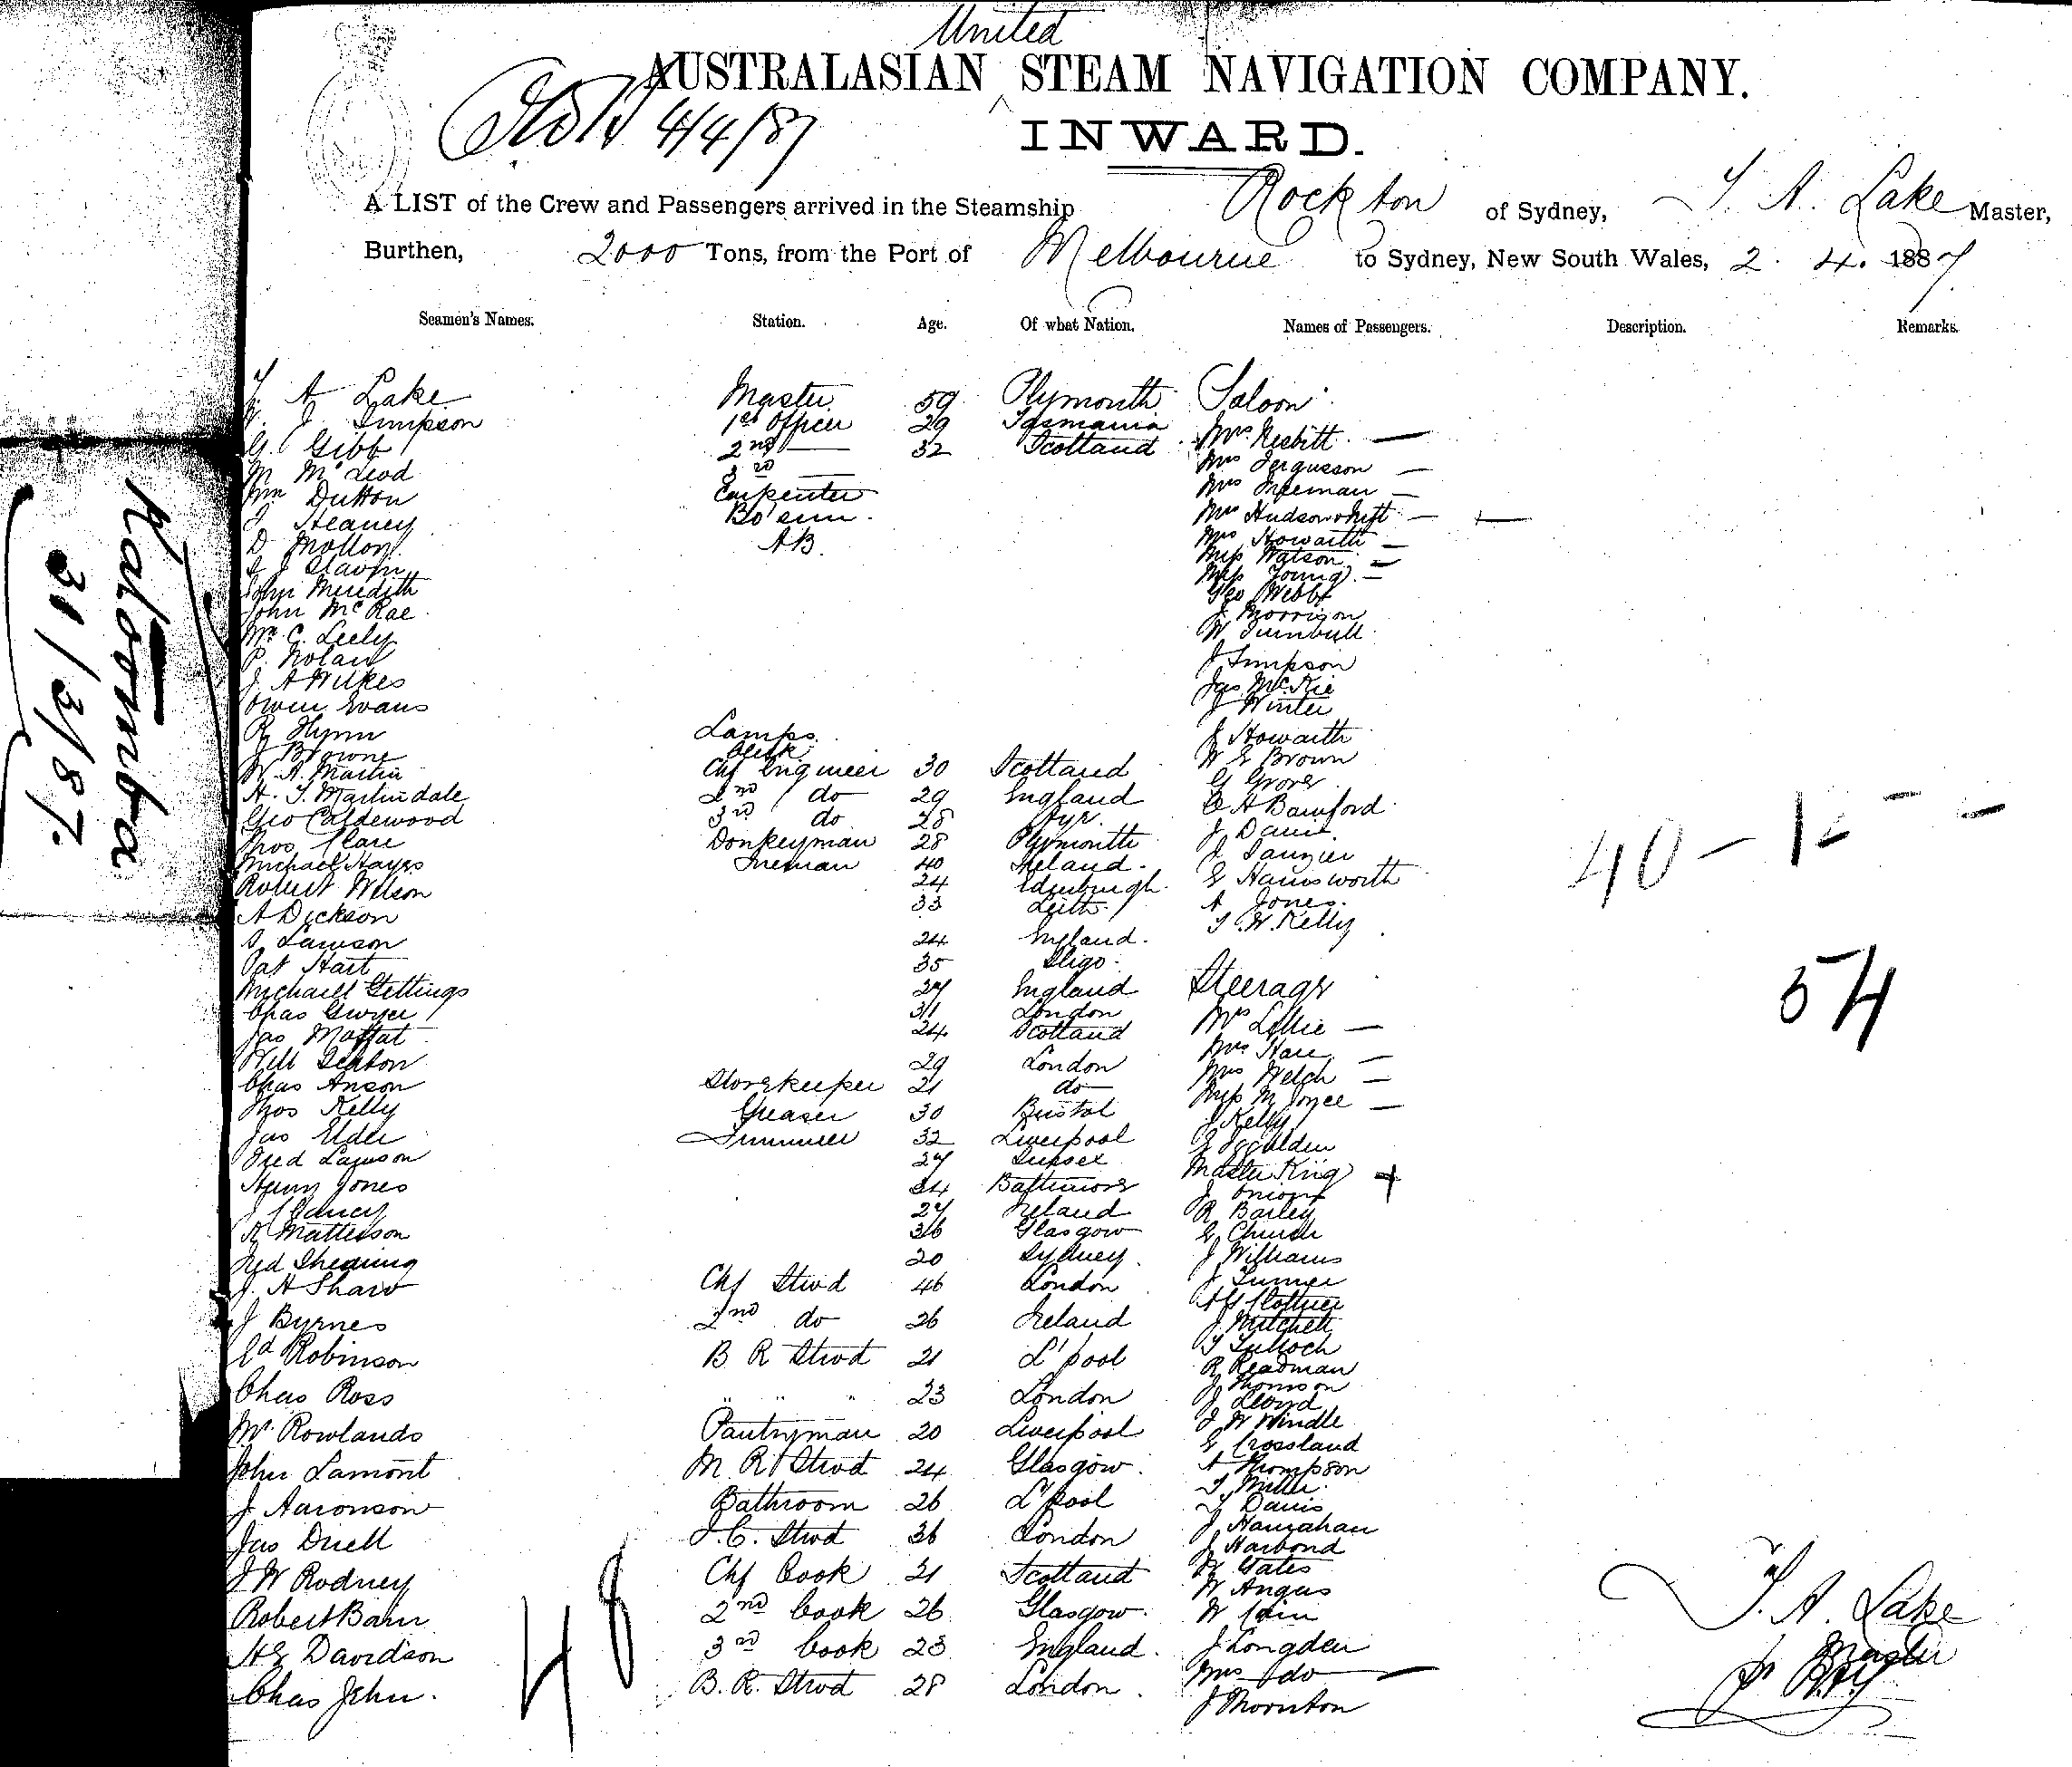 United
AUSTRALASIAN STEAM NAVIGATION COMPANY.
4/4/87
INWARD.
A LIST of the Crew and Passengers arrived in the Steamship Rockton of Sydney, T. A. Lake Master,
Burthen, 2000 Tons, from the Port of Melbourne to Sydney, New South Wales, 2. 4. 1887
Seamen's Names. Station. Age. Of what Nation. Names of Passengers. Description. Remarks.
T A Lake Master 59 Plymouth Saloon
J. Simpson 1st Officer 29 Tasmania Mrs Nesbitt —
G. Gibb 2nd — 32 Scotland Mrs Fergusson —
M McLeod 3rd — Mrs Freeman —
Wm Dutton Carpenter Mrs —
Heaney Bo'sun. Mrs Howarth —
D. Mollon AB. Miss Watson —
J Slavin Miss Young —
John Meredith Geo Webb
John McRae J Morrison
Wm C. Leely W Turnbull
P. Nolan J Simpson
J A Wilkes Jas McKie
Owen Evans J Winter
R Flynn Lamps J Howarth
J Browne Clerk W E Brown
W. A. Martin Chf Engineer 30 Scotland G Grover
H. J. Martindale 2nd do 29 England A Bamford
Geo Caldewood 3rd do 28 Ayr. J Davis
Thos Clare Donkeyman 28 Plymouth
Michael Hayes Fireman 40 Ireland. E Hainsworth
Robert Wilson 24 Edinburgh. A Jones.
A Dickson 33 Leith. T. W. Kelly
S. Lawson 24 England.
Pat Hart 35 Sligo. Steerage
Michael Gettings 27 England Mrs Lillie —
Chas Gwyer 31 London Mrs Hare —
Jas Moffat 24 Scotland Mrs Welch —
Will Seaton 29 London Miss M Joyce —
Chas Anson Storekeeper 21 do J Kelly
Thos Kelly Greaser 30 Bristol E Iggulden
Jas Elder Trimmer 32 Liverpool Master King +
Fred Lawson 27 Sussex J Onions
Henry Jones 24 Baltimore R Bailey
J Clancy 27 Ireland E Church
R Matteson 36 Glasgow J Williams
Ned Shearing 20 Sydney. J Turner
J. H Shaw Chf Stwd 46 London
J Byrnes 2nd do 26 Ireland J. Mitchell
Ed Robinson B R Stwd 21 L'pool T Tulloch
Chas Ross " " " 23 London R Readman
Wm Rowlands Pantryman 20 Liverpool J Thomson
John Lamont M. R Stwd 24 Glasgow. J Lloyd
J Aaronson Bathroom 26 L'pool J W Windle
Jas Duell F.C. Stwd 36 London E Crossland
J W Rodney Chf Cook 21 Scotland A Thompson
Robert Barr 2nd Cook 26 Glasgow. T. Miller
H E Davidson 3rd Cook 23 England. T Davis
Chas John. B. R. Stwd 28 London. J Hanrahan
J Harbond
W Gates
W Angus
W Cain
J Longden
Mrs do —
J Thornton
48
40 - 12 - -
54
T. A. Lake
Master
Katoomba
31/3/87.